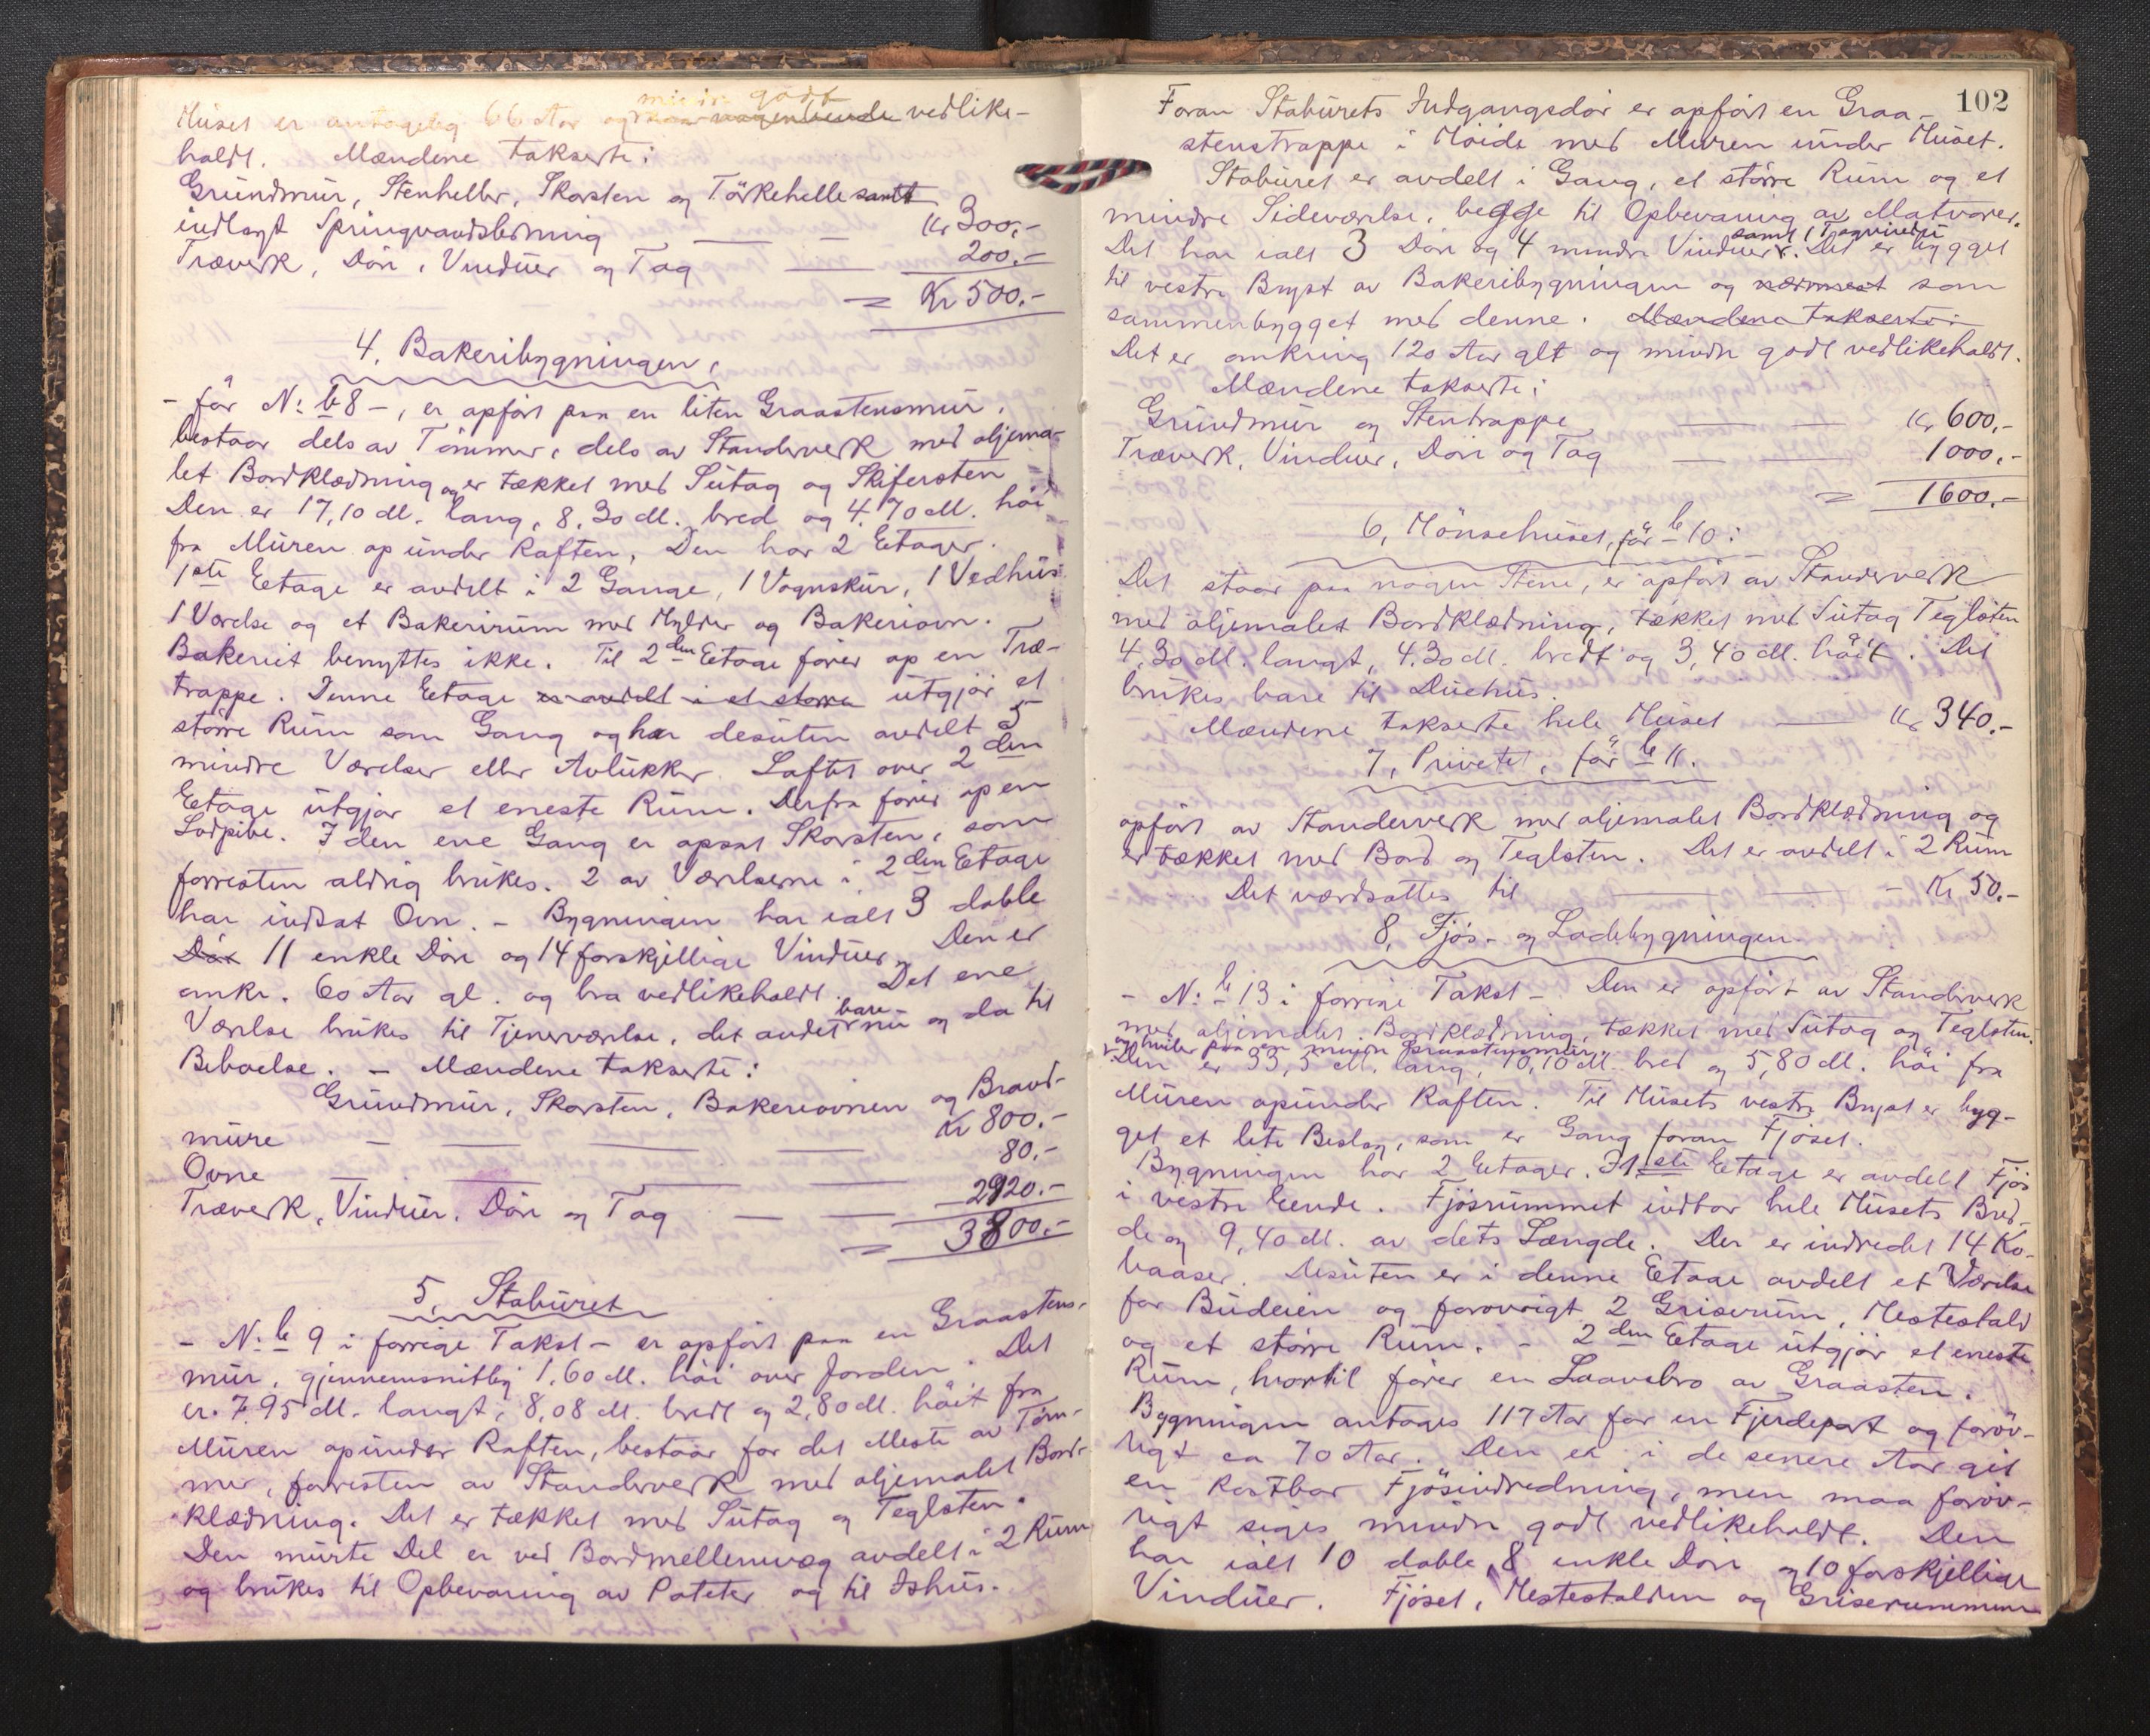 Huset er antagelig 66 Aar og mindre godt vedlike-
holdt. Mændene takserte:
Grundmur, Stenheller, Skorsten og Törkehelle samt
indlagt Springvandsledning — — Kr 300,-
Træverk, Döre, Vinduer og Tag — 200.-
= Kr 500.-
4. Bakeribygningen,
- för N: b 8 -, er opfört paa en liten Graastensmur,
bestaar dels av Tömmer, dels av Standerverk med oljema-
let Bordklædning og er tækket med Sutag og Skifersten
Den er 17,10 M. lang, 8,30 M. bred og 4,70 M. höi
fra Muren op under Raften. Den har 2 Etager.
1ste Etage er avdelt i 2 Gange, 1 Vognskur, 1 Vedhus
1 Værelse og et Bakerirum med Hylder og Bakeriovn.
Bakeriet benyttes ikke. Til 2den Etage förer op en Træ-
trappe. Denne Etage er avdelt i et större utgjör et
större Rum som Gang og har desuten avdelt 5
mindre Værelser eller Avlukker. Loftet over 2den
Etage utgjör et eneste Rum. Derfra förer op en
Lodpibe. I den ene Gang er opsat Skorsten, som
forresten aldrig brukes. 2 av Værelserne i 2den Etage
har indsat Ovn. - Bygningen har ialt 3 doble
Dör 11 enkle Döre og 14 forskjellige Vinduer. Den er
omkr. 60 Aar gl. og bra vedlikeholdt. Det ene
Værelse brukes til Tjenerværelse, det andet bare nu og da til
Beboelse. - Mændene takserte:
Grundmur, Skorsten, Bakeriovnen og Brand-
mure — — — — Kr 800.-
Ovne — — — 80.-
Træverk, Vinduer, Döre og Tag — — 2920.-
= 3800.-
5, Staburet
- N: b 9 i forrige Takst - er opfört paa en Graastens-
mur, gjennemsnitlig 1,60 M. höi over Jorden. Det
er 7,95 M. langt, 8,08 M. bredt og 2,80 M. höit fra
Muren opunder Raften, bestaar for det Meste av Töm-
mer, forresten av Standerverk med oljemalet Bord-
klædning. Det er tækket med Sutag og Teglsten.
Den murte Del er ved Bordmellemvæg avdelt i 2 Rum
og brukes til Opbevaring av Poteter og til Ishus.
102
Foran Staburets Indgangsdör er opfört en Graa-
stenstrappe i Höide med Muren under Huset.
Staburet er avdelt i Gang, et större Rum og et
mindre Sideværelse, begge til Opbevaring av Matvarer.
Det har ialt 3 Döre og 4 mindre Vinduer samt 1 Tagvindu. Det er bygget
til vestre Bryst av Bakeribygningen og nærmest som
sammenbygget med denne. Mændene takserte:
Det er omkring 120 Aar glt og mindre godt vedlikeholdt.
Mændene takserte:
Grundmur og Stentrappe — — Kr 600,-
Træverk, Vinduer, Döre og Tag — — 1000,-
= 1600.-
6, Hönsehuset, för b 10:
Det staar paa nogen Stene, er opfört av Standerverk
med oljemalet Bordklædning, tækket med Sutag Teglsten
4,30 M. langt, 4.30 M. bredt og 3,40 M. höit. Det
brukes bare til Duehus.
Mændene takserte hele Huset — Kr 340.-
7, Privetet, för b 11.
opfört av Standerverk med oljemalet Bordklædning og
er tækket med Bord og Teglsten. Det er avdelt i 2 Rum
Det værdsattes til — — - Kr 50.-
8, Fjös- og Ladebygningen
- N: b 13 i forrige Takst - Den er opfört av Standerverk
med oljemalet Bordklædning, tækket med Sutag og Teglsten.
og hviler paa en mindre Graastensmur.
Den er 33,5 M. lang, 10,10 M. bred og 5,80 M. höi fra
Muren opunder Raften. Til Husets vestre Bryst er byg-
get et lite Beslag, som er Gang foran Fjöset.
Bygningen har 2 Etager. I 1ste Etage er avdelt Fjös
i vestre Eende. Fjösrummet indtar hele Husets Bred-
de og 9,40 M. av dets Længde. Der er indredet 14 Ko-
baaser. Desuten er i denne Etage avdelt et Værelse
for Budeien og forövrigt 2 Griserum, Hestestald
og et större Rum. - 2den Etage utgjör et eneste
Rum, hvortil förer en Laavebro av Graasten.
Bygningen antages 117 Aar for en Fjerdepart og foröv-
rigt ca 70 Aar. Den er i de senere Aar git
en kostbar Fjösindredning, men maa foröv-
rigt siges mindre godt vedlikeholdt. Den
har ialt 10 doble, 8 enkle Döre og 10 forskjellige
Vinduer. Fjöset, Hestestalden og Griserummene